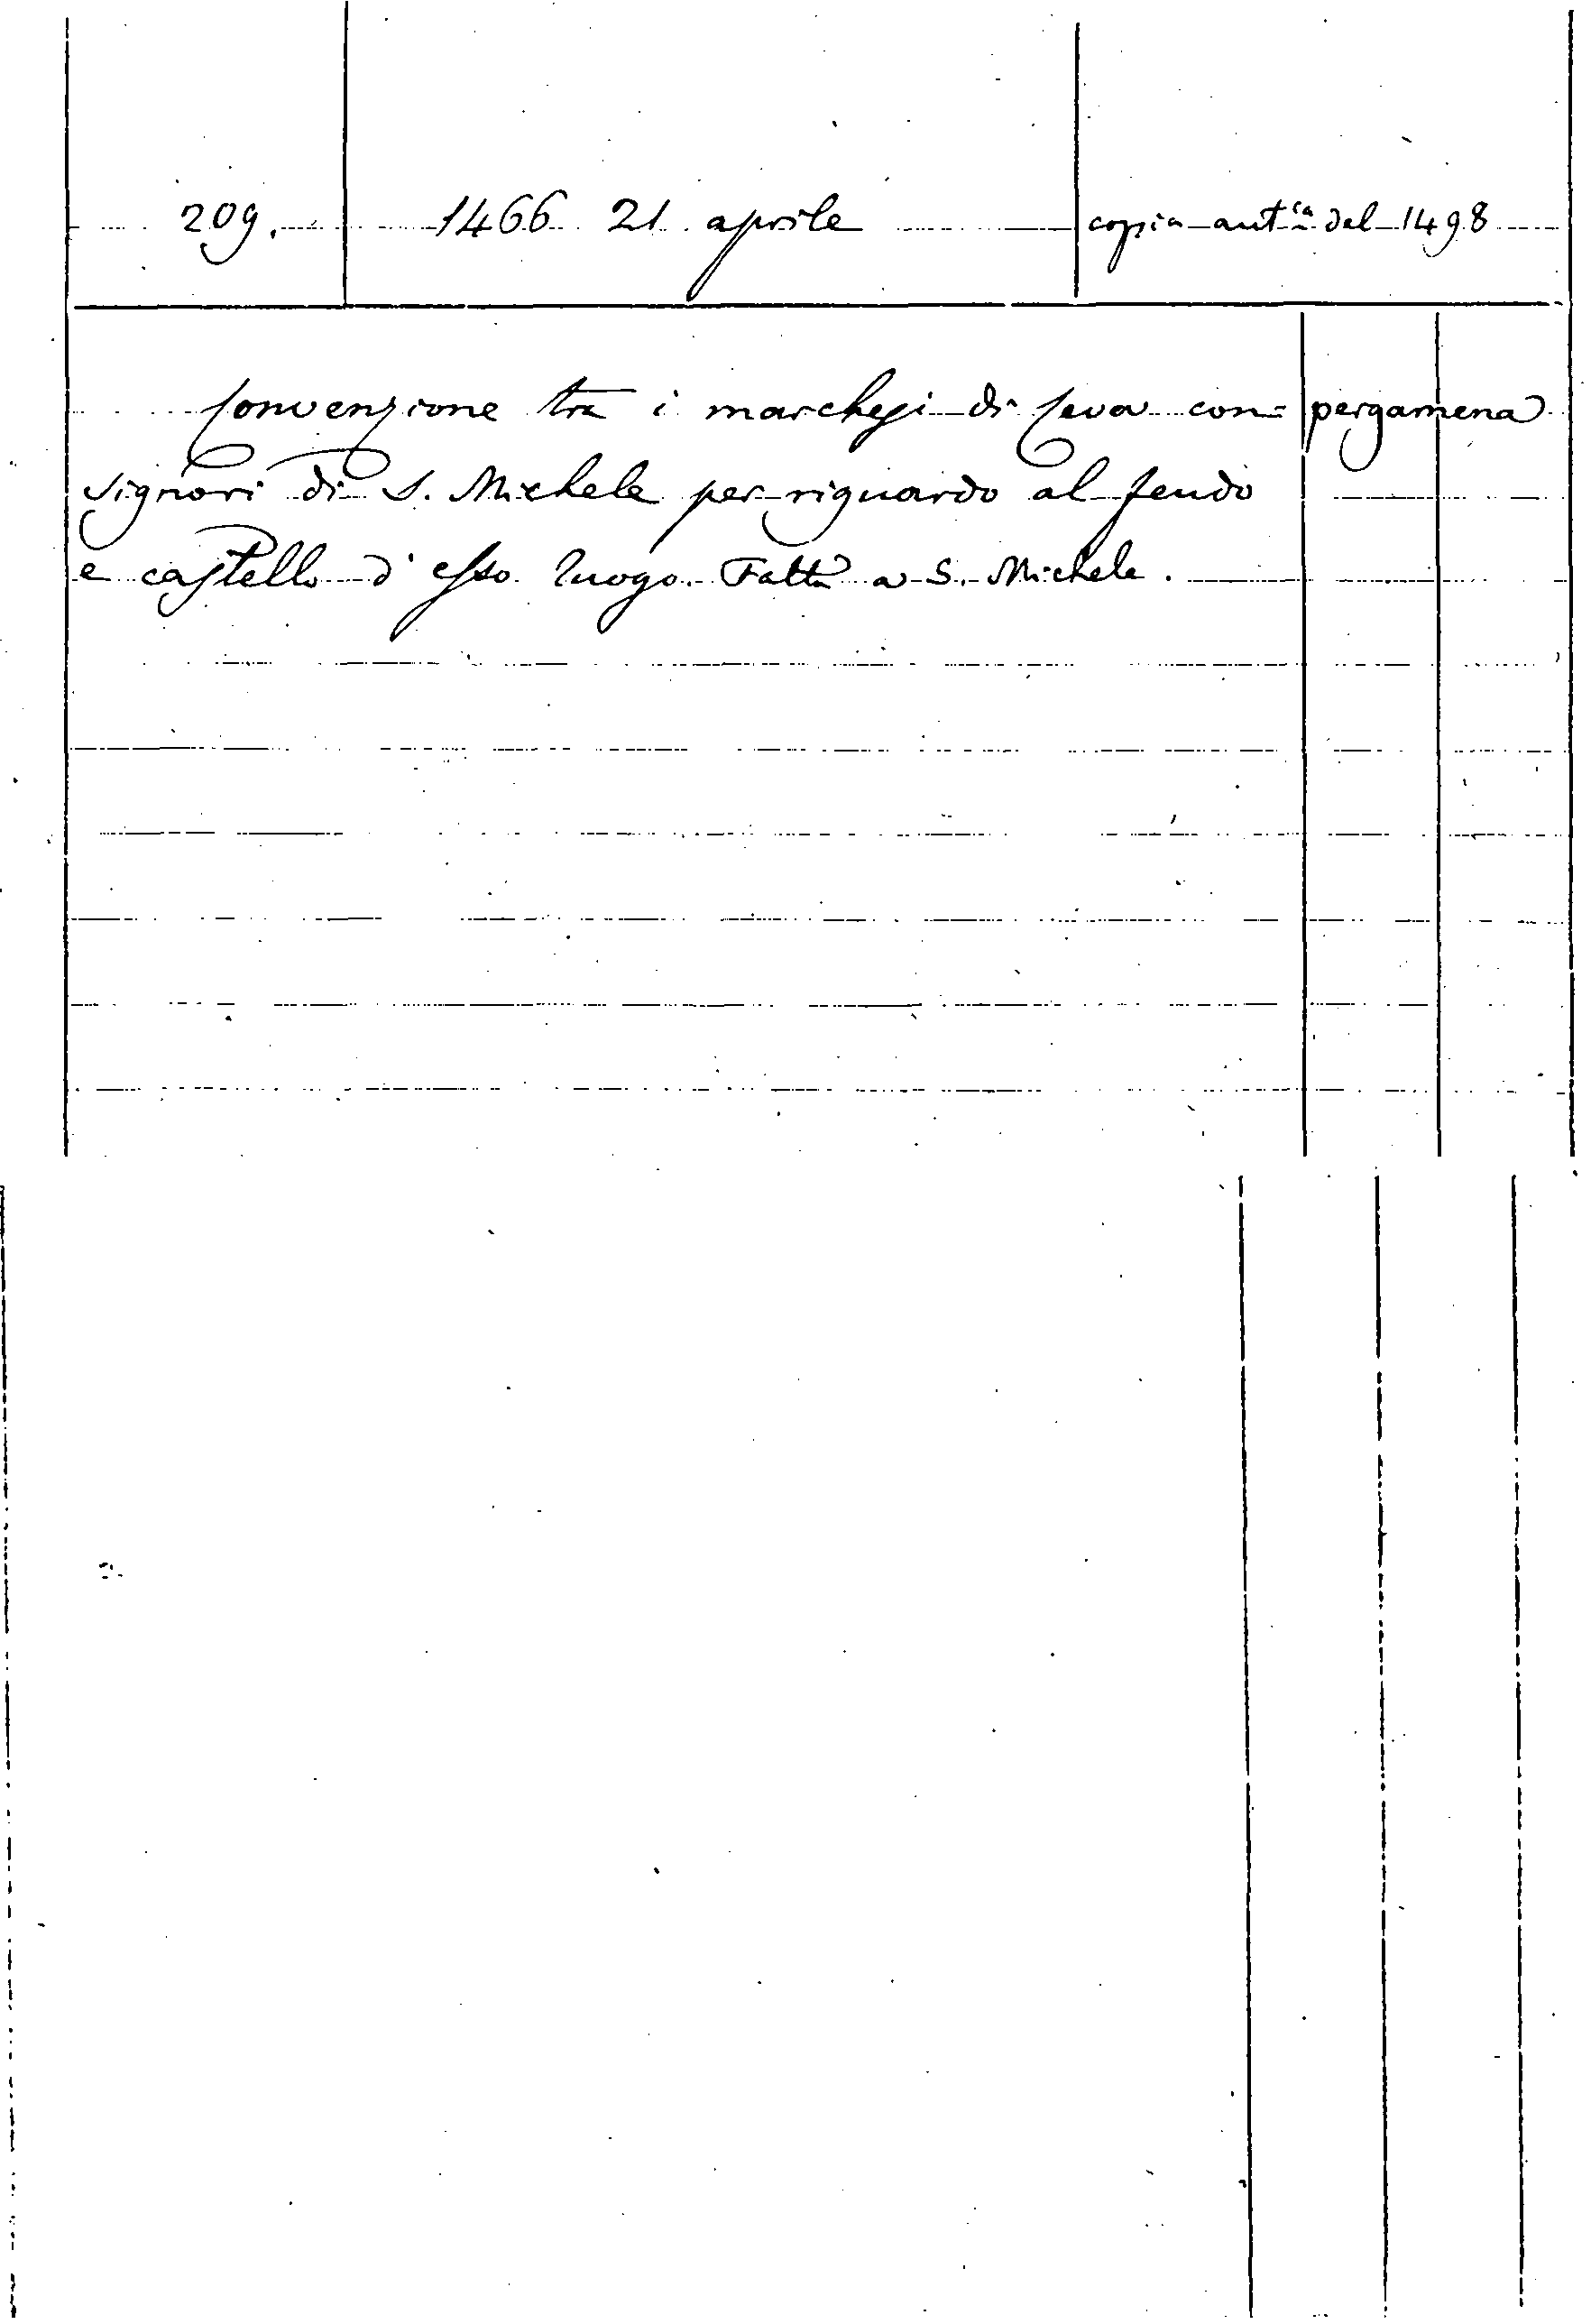 209. 1466 21 aprile copia aut.ca del 1498
Convenzione tra i marchesi di Ceva con= pergamena
signori di S. Michele per riguardo al feudo
e castello d'esso luogo. Fatta a S. Michele.